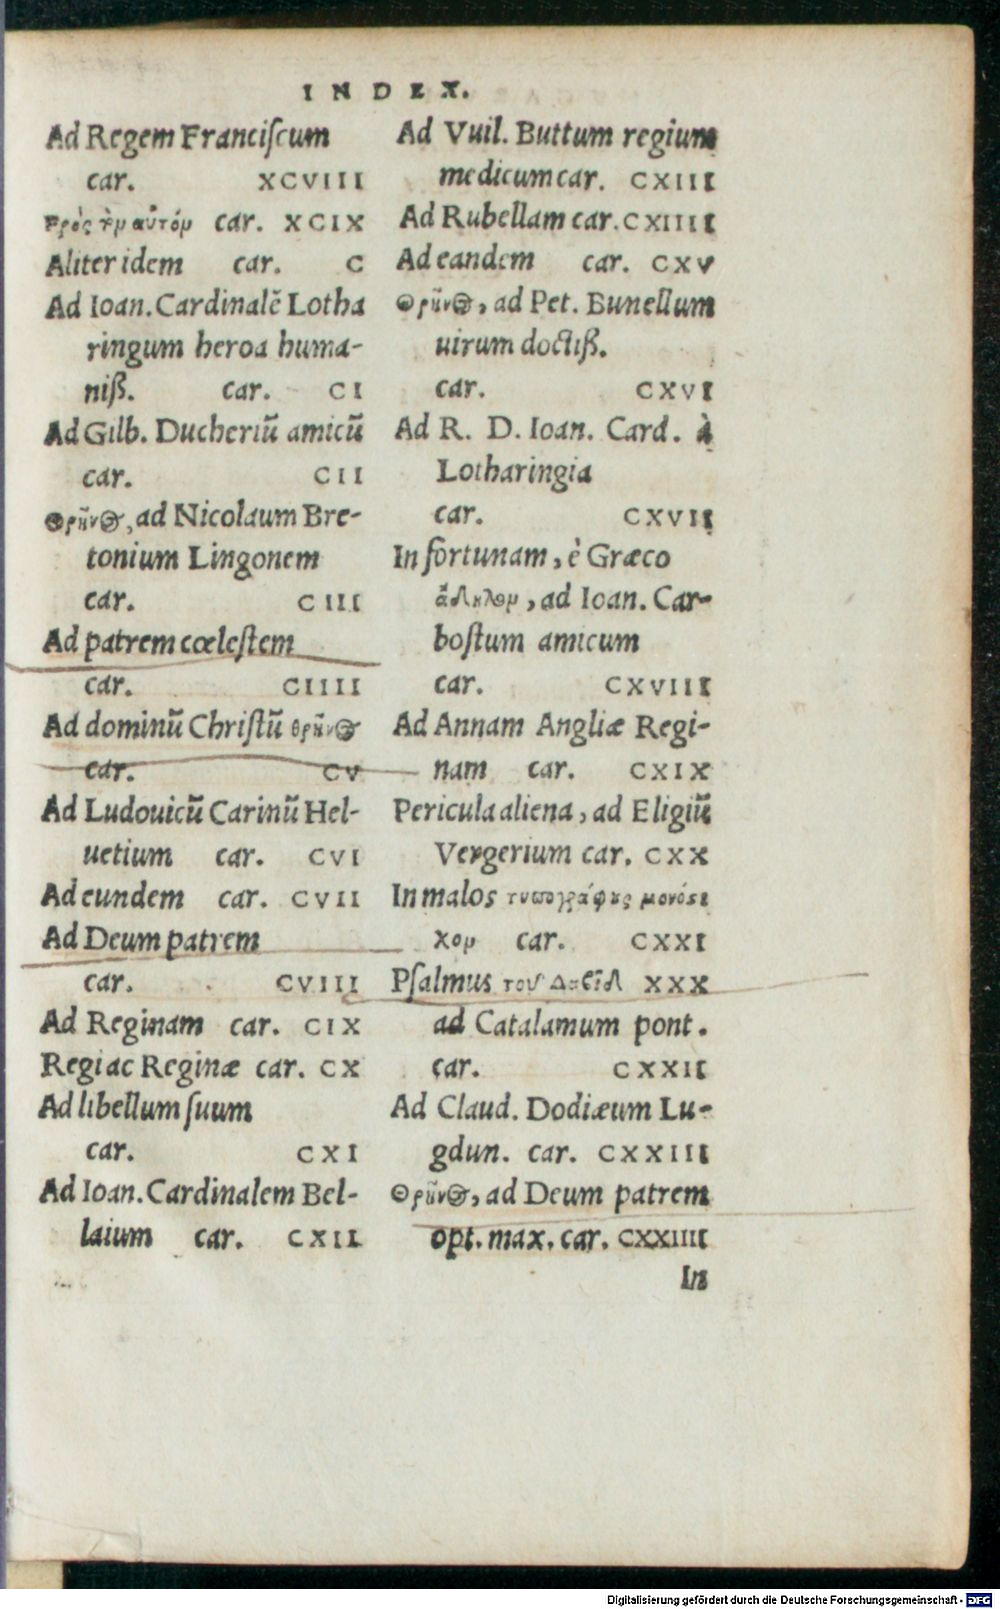 INDEX.
Ad Regem Franciſcum
car. XCVIII
πρὸς τὸν αὐτόν car. XCIX
Aliter idem car. C
Ad Ioan. Cardinalē Lotha
ringum heroa huma-
niß. car. CI
Ad Gilb. Ducheriū amicū
car. CII
Θρῆνος, ad Nicolaum Bre-
tonium Lingonem
car. CIII
Ad patrem cœleſtem
car. CIIII
Ad dominū Chriſtū θρῆνος
car. CV
Ad Ludouicū Carinū Hel-
uetium car. CVI
Ad eundem car. CVII
Ad Deum patrem
car. CVIII
Ad Reginam car. CIX
Regi ac Reginæ car. CX
Ad libellum ſuum
car. CXI
Ad Ioan. Cardinalem Bel-
laium car. CXII
Ad Vuil. Buttum regium
medicum car. CXIII
Ad Rubellam car. CXIIII
Ad eandem car. CXV
Θρῆνος, ad Pet. Bunellum
uirum doctiß.
car. CXVI
Ad R. D. Ioan. Card. à
Lotharingia
car. CXVII
In fortunam, è Græco
ἄδηλον, ad Ioan. Car-
boſtum amicum
car. CXVIII
Ad Annam Angliæ Regi-
nam car. CXIX
Pericula aliena, ad Eligiū
Vergerium car. CXX
In malos τυπογράφους μονόςι
χον car. CXXI
Pſalmus τοῦ Δαβὶδ XXX
ad Catalamum pont.
car. CXXII
Ad Claud. Dodiæum Lu-
gdun. car. CXXIII
Θρῆνος, ad Deum patrem
opt. max. car. CXXIIII
In
Digitalisierung gefördert durch die Deutsche Forschungsgemeinschaft - DFG